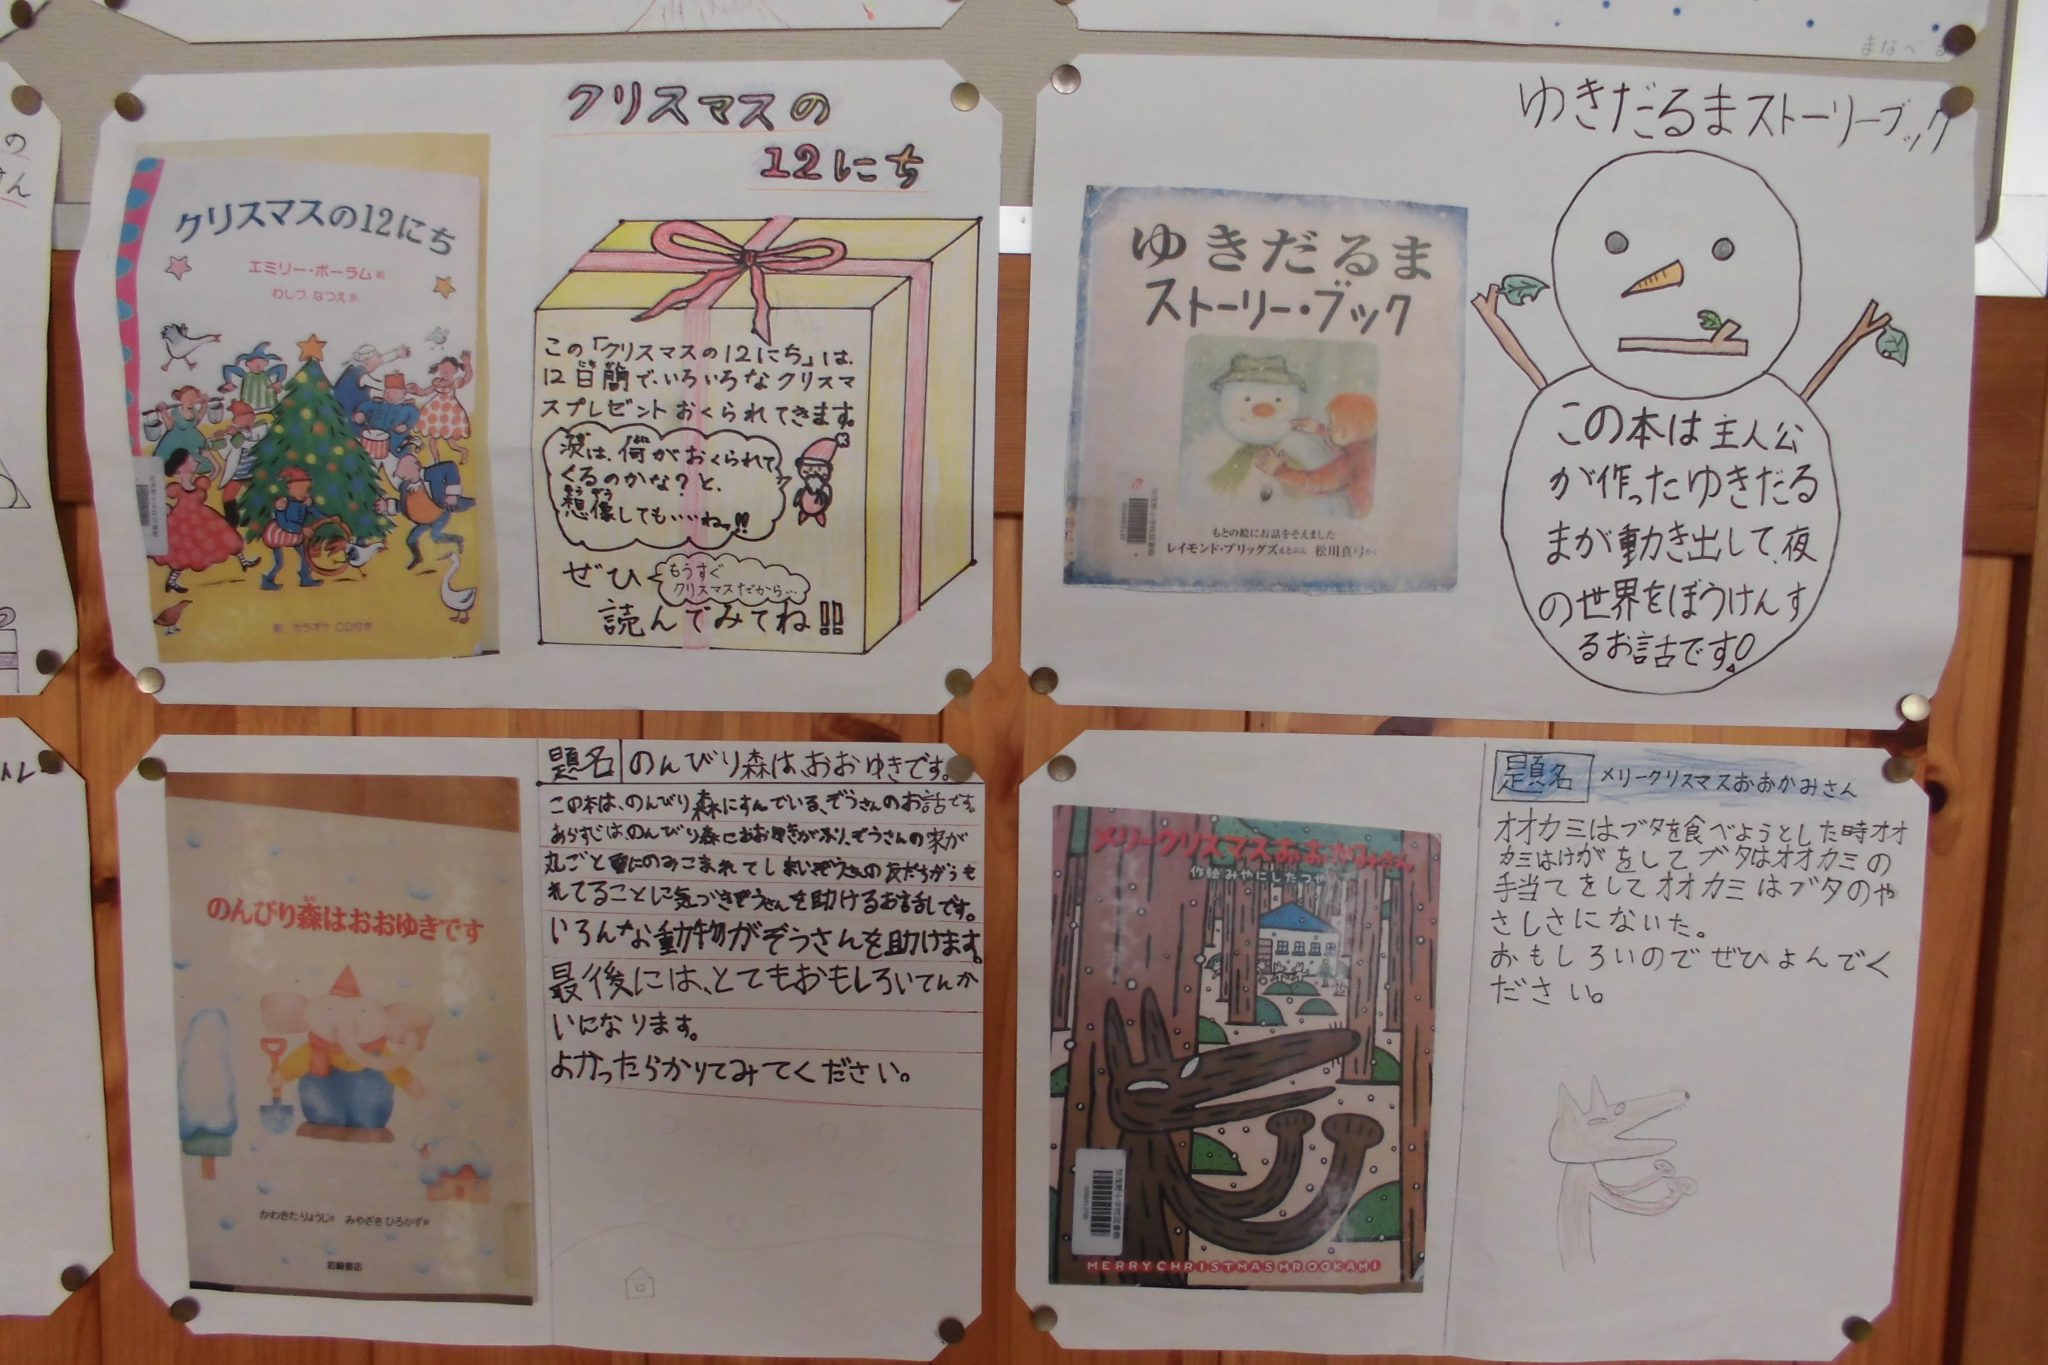 まなべ
の
さん
クリスマスの
12にち
クリスマスの12にち
エミリー・ボーラム 絵
わしづ なつえ 訳
歌 カラオケ CD付き
この「クリスマスの12にち」は、
12日間で、いろいろなクリスマ
スプレゼントおくられてきます。
次は、何がおくられて
くるのかな?と、
想像しても・・・ねッ!!
ぜひ
もうすぐ
クリスマスだから…
読んでみてね!!
ゆきだるまストーリーブック
ゆきだるま
ストーリー・ブック
もとの絵にお話をそえました
レイモンド・ブリッグズ さくぶん 松川真弓 やく
この本は主人公
が作ったゆきだる
まが動き出して、夜
の世界をぼうけんす
るお話です!
題名 のんびり森は、おおゆきです。
この本は、のんびり森にすんでいる、ぞうさんのお話です。
あらすじは、のんびり森におおゆきがふり、ぞうさんの家が
丸ごと雪にのみこまれてしまいぞうさんの友だちがうも
れてることに気づきぞうさんを助けるお話しです。
いろんな動物がぞうさんを助けます。
最後には、とてもおもしろいてんか
いになります。
よかったらかりてみてください。
のんびり森はおおゆきです
かわきたりょうじ 作 みやざきひろかず 絵
岩崎書店
題名 メリークリスマスおおかみさん
オオカミはブタを食べようとした時オオ
カミはけがをしてブタはオオカミの
手当てをしてオオカミはブタのや
さしさにないた。
おもしろいのでぜひよんでく
ださい。
メリークリスマスおおかみさん
作絵 みやにしたつや
MERRYCHRISTMASMR.OOKAMI